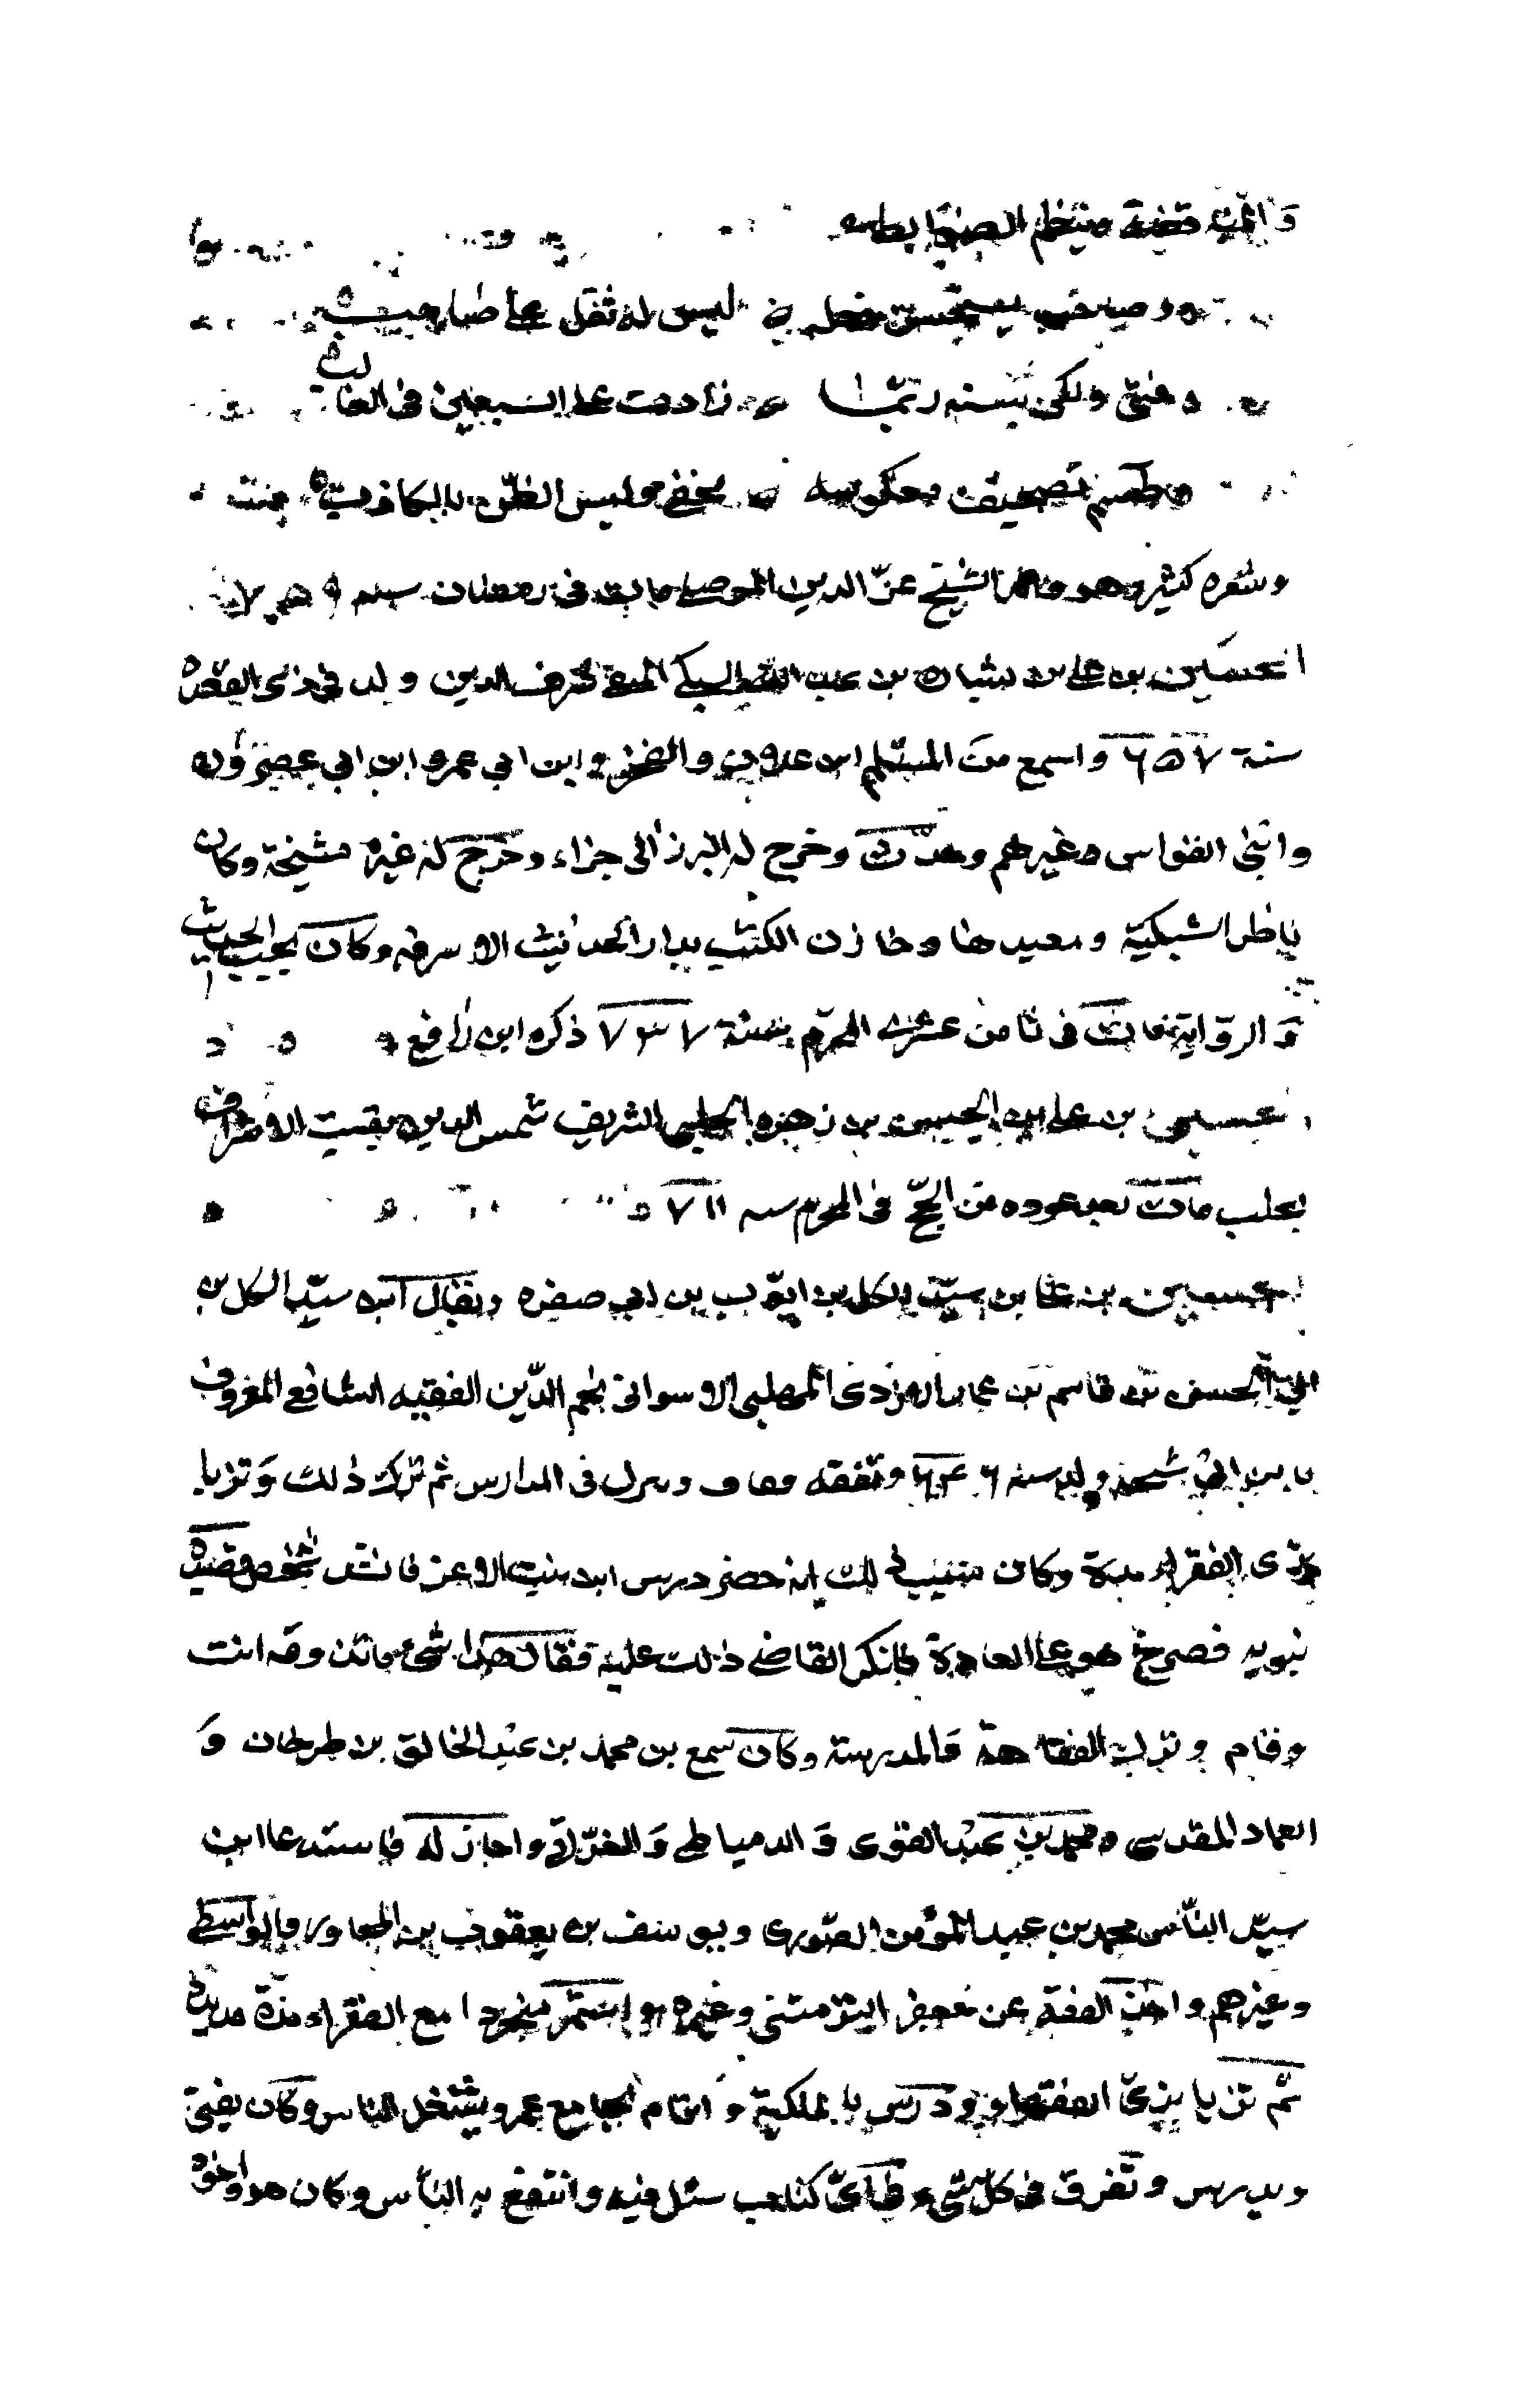 وصاحب يستحسن فعله ليس له ثقل على صاحب
وهي ولكن بينه ربما زادت على السبعين في الغالب
تصحيف معكوسه يخفى وليس الظن بالكاذب
وشعره كثير وهو والد الشيخ عز الدين الموصلي مات في رمضان سنه ٧٥٩
الحسين بن علي بن بشارة بن عبد الله الشبلي الحنفي شرف الدين ولد في ذي القعدة
سنة ٦٥٧ واسمع من المسلم ابن علان والفخر وابن ابي عمر وابن ابي عصرون
وابني القواس وغيرهم وحدث وخرج له البرزالي جزاء وخرج له غيره مشيخة وكان
ناظر الشبلية ومعيدها وخازن الكتب بدار الحديث الاشرفيه وكان يحب الحديث
والرواية مات في ثامن عشرى المحرم سنة ٧٣٧ ذكره ابن رافع
الحسين بن علي بن الحسين بن زهره الحلبي الشريف شمس الدين نقيب الاشراف
بحلب مات بعد عوده من الحج في المحرم سنه ٧١١
الحسين بن علي بن سيد الكل بن ايوب بن ابي صفره ويقال ابن سيد الكل بن
ابي الحسن بن قاسم بن عمار الازدي المهلبي الاسواني نجم الدين الفقيه الشافعي المعروف
بابن ابي شيخه ولد سنه ٦٤٦ وتفقه ومات ونزل في المدارس ثم ترك ذلك وتزيا
بزي الفقراء مدة وكان سبب ذلك انه حضر درس ابن بنت الاعز فانشد شخص قصيدة
نبويه فصرخ هو على العادة فانكر القاضي ذلك عليه فقال هذا شيء ماتذوقه انت
وقام وترك الفقاهة والمدرسة وكان سمع من محمد بن عبد الخالق بن طرخان و
العماد المقدسي ومحمد بن عبد القوي والدمياطي والغرافي واجاز له في استدعا ابن
سيد الناس محمد بن عبد المؤمن الصوري ويوسف بن يعقوب بن المجاور والواسطي
وغيرهم واخذ الفقه عن جعفر التزمنتي وغيره واستمر متجردا مع الفقراء مدة مديدة
ثم تزيا بزي الفقهاء ودرس بالملكية واقام بجامع عمرو يشتغل الناس وكان يفتي
ويدرس وتفرق في كل شيء واي كتاب سئل فيه وانتفع به الناس وكان هو واخوه